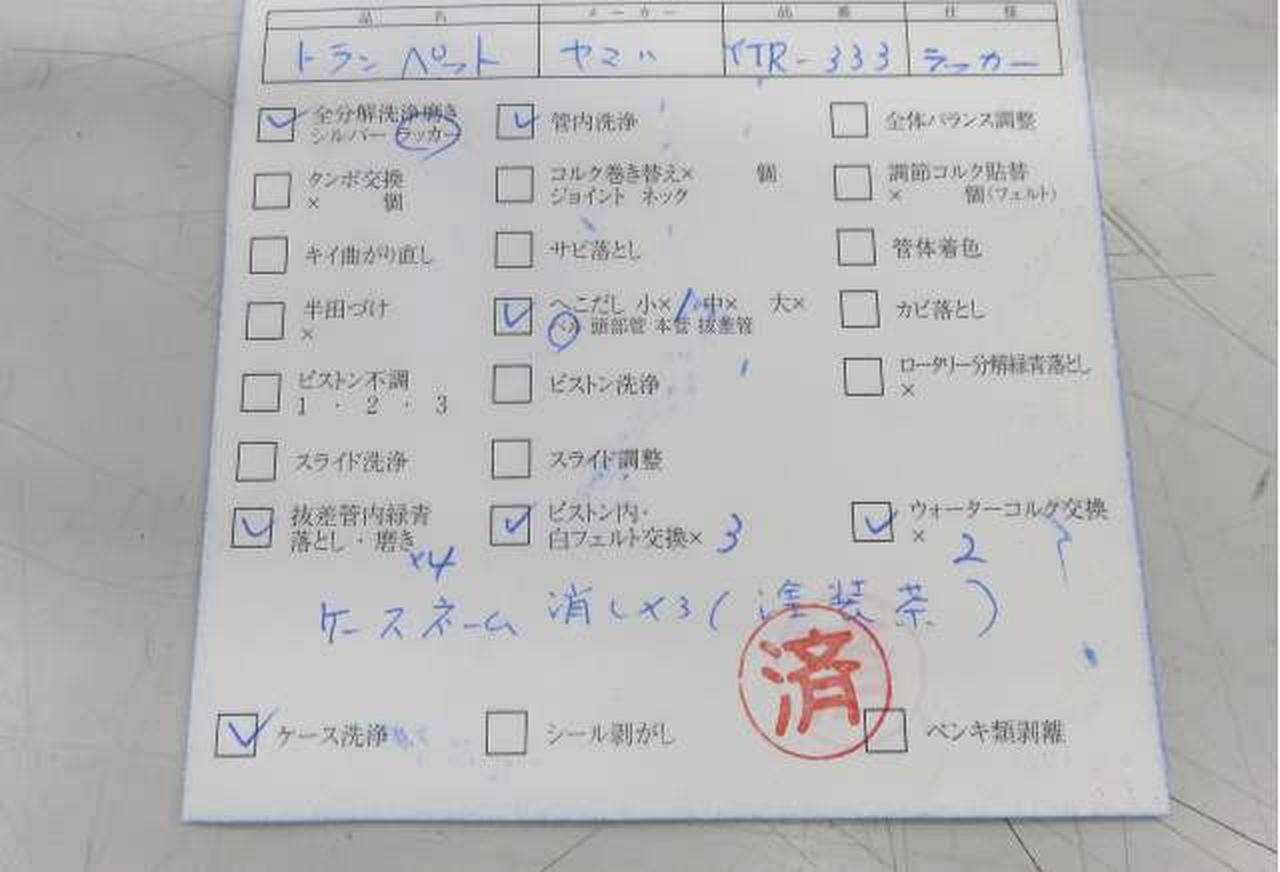 品名 メーカー 品番 仕様
トランペット ヤマハ YTR-333 ラッカー
全分解洗浄磨き 管内洗浄 全体バランス調整
シルバー ラッカー
タンポ交換 コルク巻き替え× 個 調節コルク貼替
× 個 ジョイント ネック × 個(フェルト)
キイ曲がり直し サビ落とし 管体着色
半田づけ へこだし 小×1 中× 大× カビ落とし
× ベル 頭部管 本管 抜差管
ピストン不調 ピストン洗浄 ロータリー分解緑青落とし
1 ・ 2 ・ 3 ×
スライド洗浄 スライド調整
抜差管内緑青 ピストン内・ ウォーターコルク交換
落とし・磨き ×4 白フェルト交換× 3 × 2
ケースネーム 消し×3(塗装茶)
済
ケース洗浄 シール剥がし ペンキ類剥離